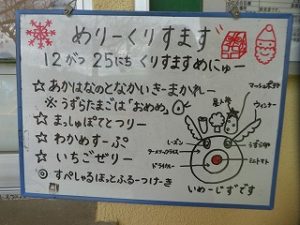 めりーくりすます
12がつ 25にち くりすますめにゅー
☆ あかはなのとなかいきーまかれー
※うずらたまごは「おめめ」
☆ まっしゅぽてとつりー
☆ わかめすーぷ
☆ いちごぜりー
○ すぺしゃるほっとふるーつけーき
マッシュポテト
ウィンナー
星人参
うずら卵
レーズン
ミニトマト
ドライカレー
いめーじずです